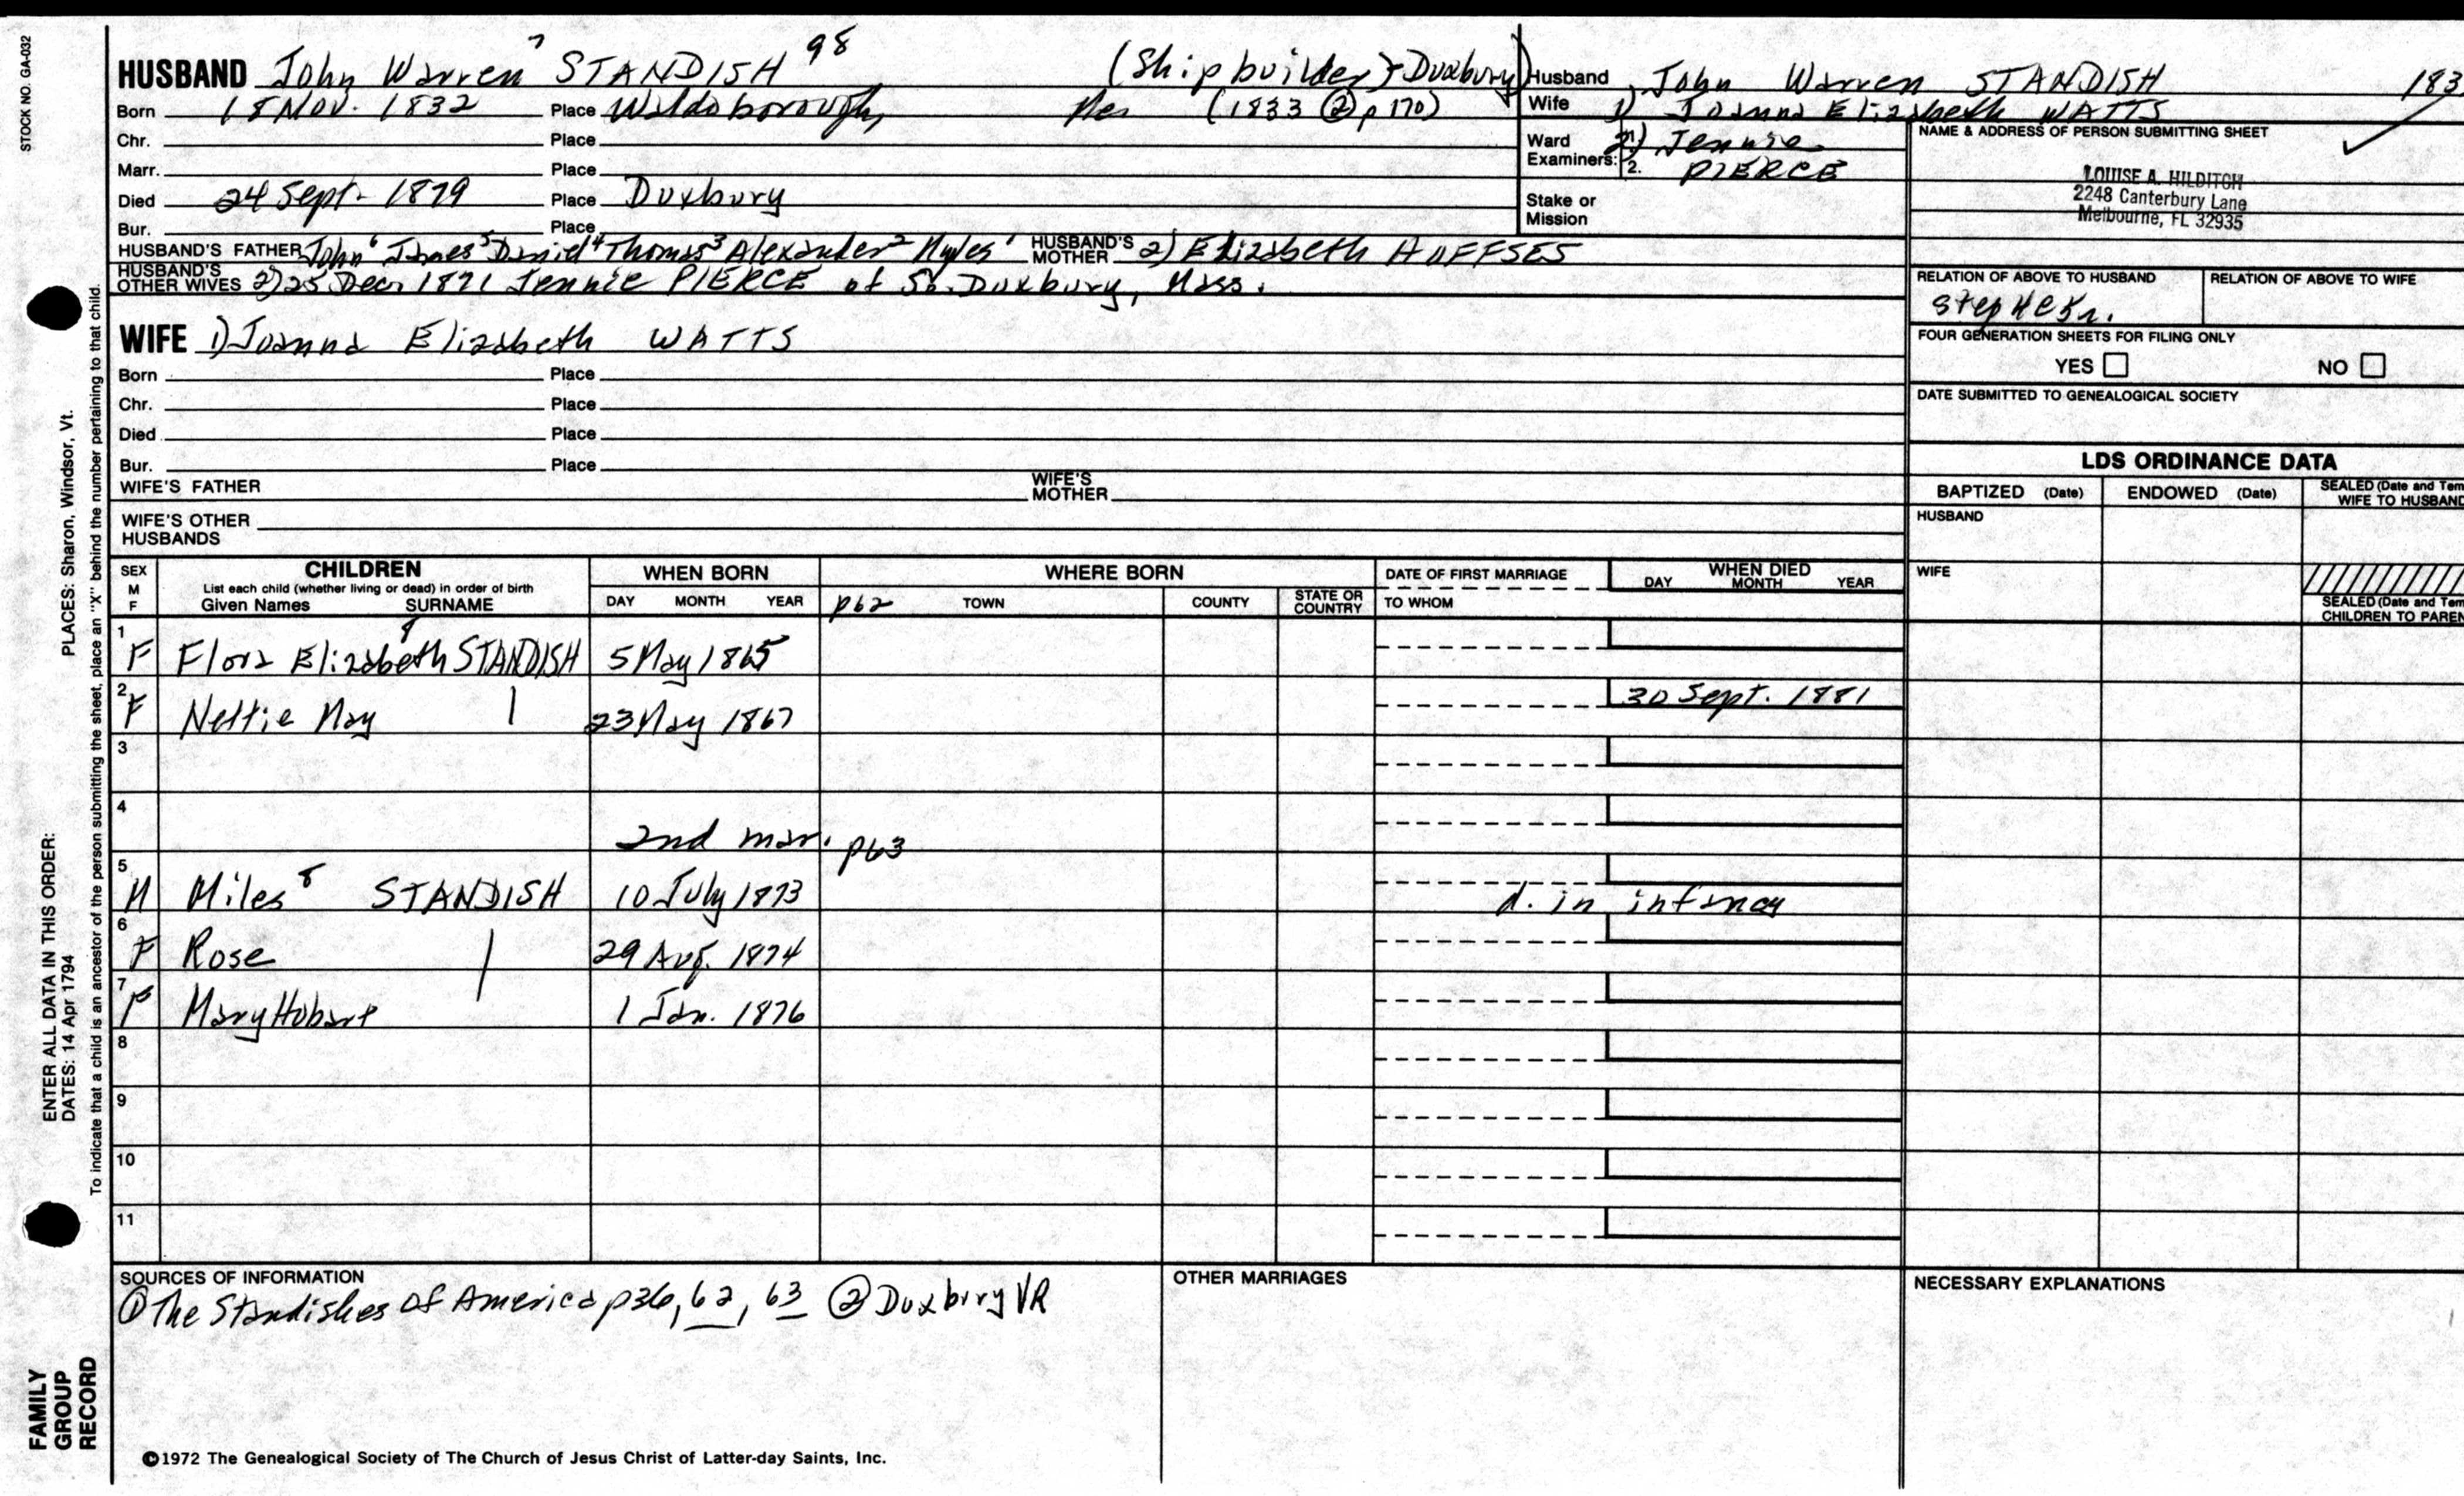 STOCK NO. GA-032
HUSBAND John Warren 7 STANDISH 98 (Shipbuilder, Duxbury)
Born 18 Nov. 1832 Place Waldoborough, Me. (1833 ② p 170)
Chr. Place
Marr. Place
Died 24 Sept. 1879 Place Duxbury
Bur. Place
HUSBAND'S FATHER John 6 James 5 Daniel 4 Thomas 3 Alexander 2 Myles 1 HUSBAND'S MOTHER 2) Elizabeth HOFFSES
HUSBAND'S OTHER WIVES 2) 25 Dec. 1871 Jennie PIERCE of So. Duxbury, Mass.
Husband John Warren STANDISH 183
Wife 1) Joanna Elizabeth WATTS
Ward 2) Jennie
Examiners: 2. PIERCE
Stake or
Mission
NAME & ADDRESS OF PERSON SUBMITTING SHEET
LOUISE A. HILDITCH
2248 Canterbury Lane
Melbourne, FL 32935
RELATION OF ABOVE TO HUSBAND RELATION OF ABOVE TO WIFE
FOUR GENERATION SHEETS FOR FILING ONLY
YES NO
DATE SUBMITTED TO GENEALOGICAL SOCIETY
WIFE 1) Joanna Elizabeth WATTS
Born Place
Chr. Place
Died Place
Bur. Place
WIFE'S FATHER WIFE'S MOTHER
WIFE'S OTHER
HUSBANDS
LDS ORDINANCE DATA
BAPTIZED (Date) ENDOWED (Date) SEALED (Date and Tem
WIFE TO HUSBAND
HUSBAND
WIFE
SEALED (Date and Tem
CHILDREN TO PAREN
SEX M F CHILDREN WHEN BORN WHERE BORN DATE OF FIRST MARRIAGE WHEN DIED
List each child (whether living or dead) in order of birth
Given Names SURNAME DAY MONTH YEAR p62 TOWN COUNTY STATE OR COUNTRY TO WHOM DAY MONTH YEAR
1 F Flora Elizabeth 8 STANDISH 5 May 1865
2 F Nettie May 23 May 1867 30 Sept. 1881
3
4 2nd mar. p63
5 M Miles 8 STANDISH 10 July 1873 d. in infancy
6 F Rose 29 Aug. 1874
7 F Mary Hobart 1 Jan. 1876
8
9
10
11
SOURCES OF INFORMATION
① The Standishes of America p36, 62, 63 ② Duxbury VR
OTHER MARRIAGES
NECESSARY EXPLANATIONS
©1972 The Genealogical Society of The Church of Jesus Christ of Latter-day Saints, Inc.
ENTER ALL DATA IN THIS ORDER: PLACES: Sharon, Windsor, Vt.
DATES: 14 Apr 1794
To indicate that a child is an ancestor of the person submitting the sheet, place an "X" behind the number pertaining to that child.
FAMILY
GROUP
RECORD